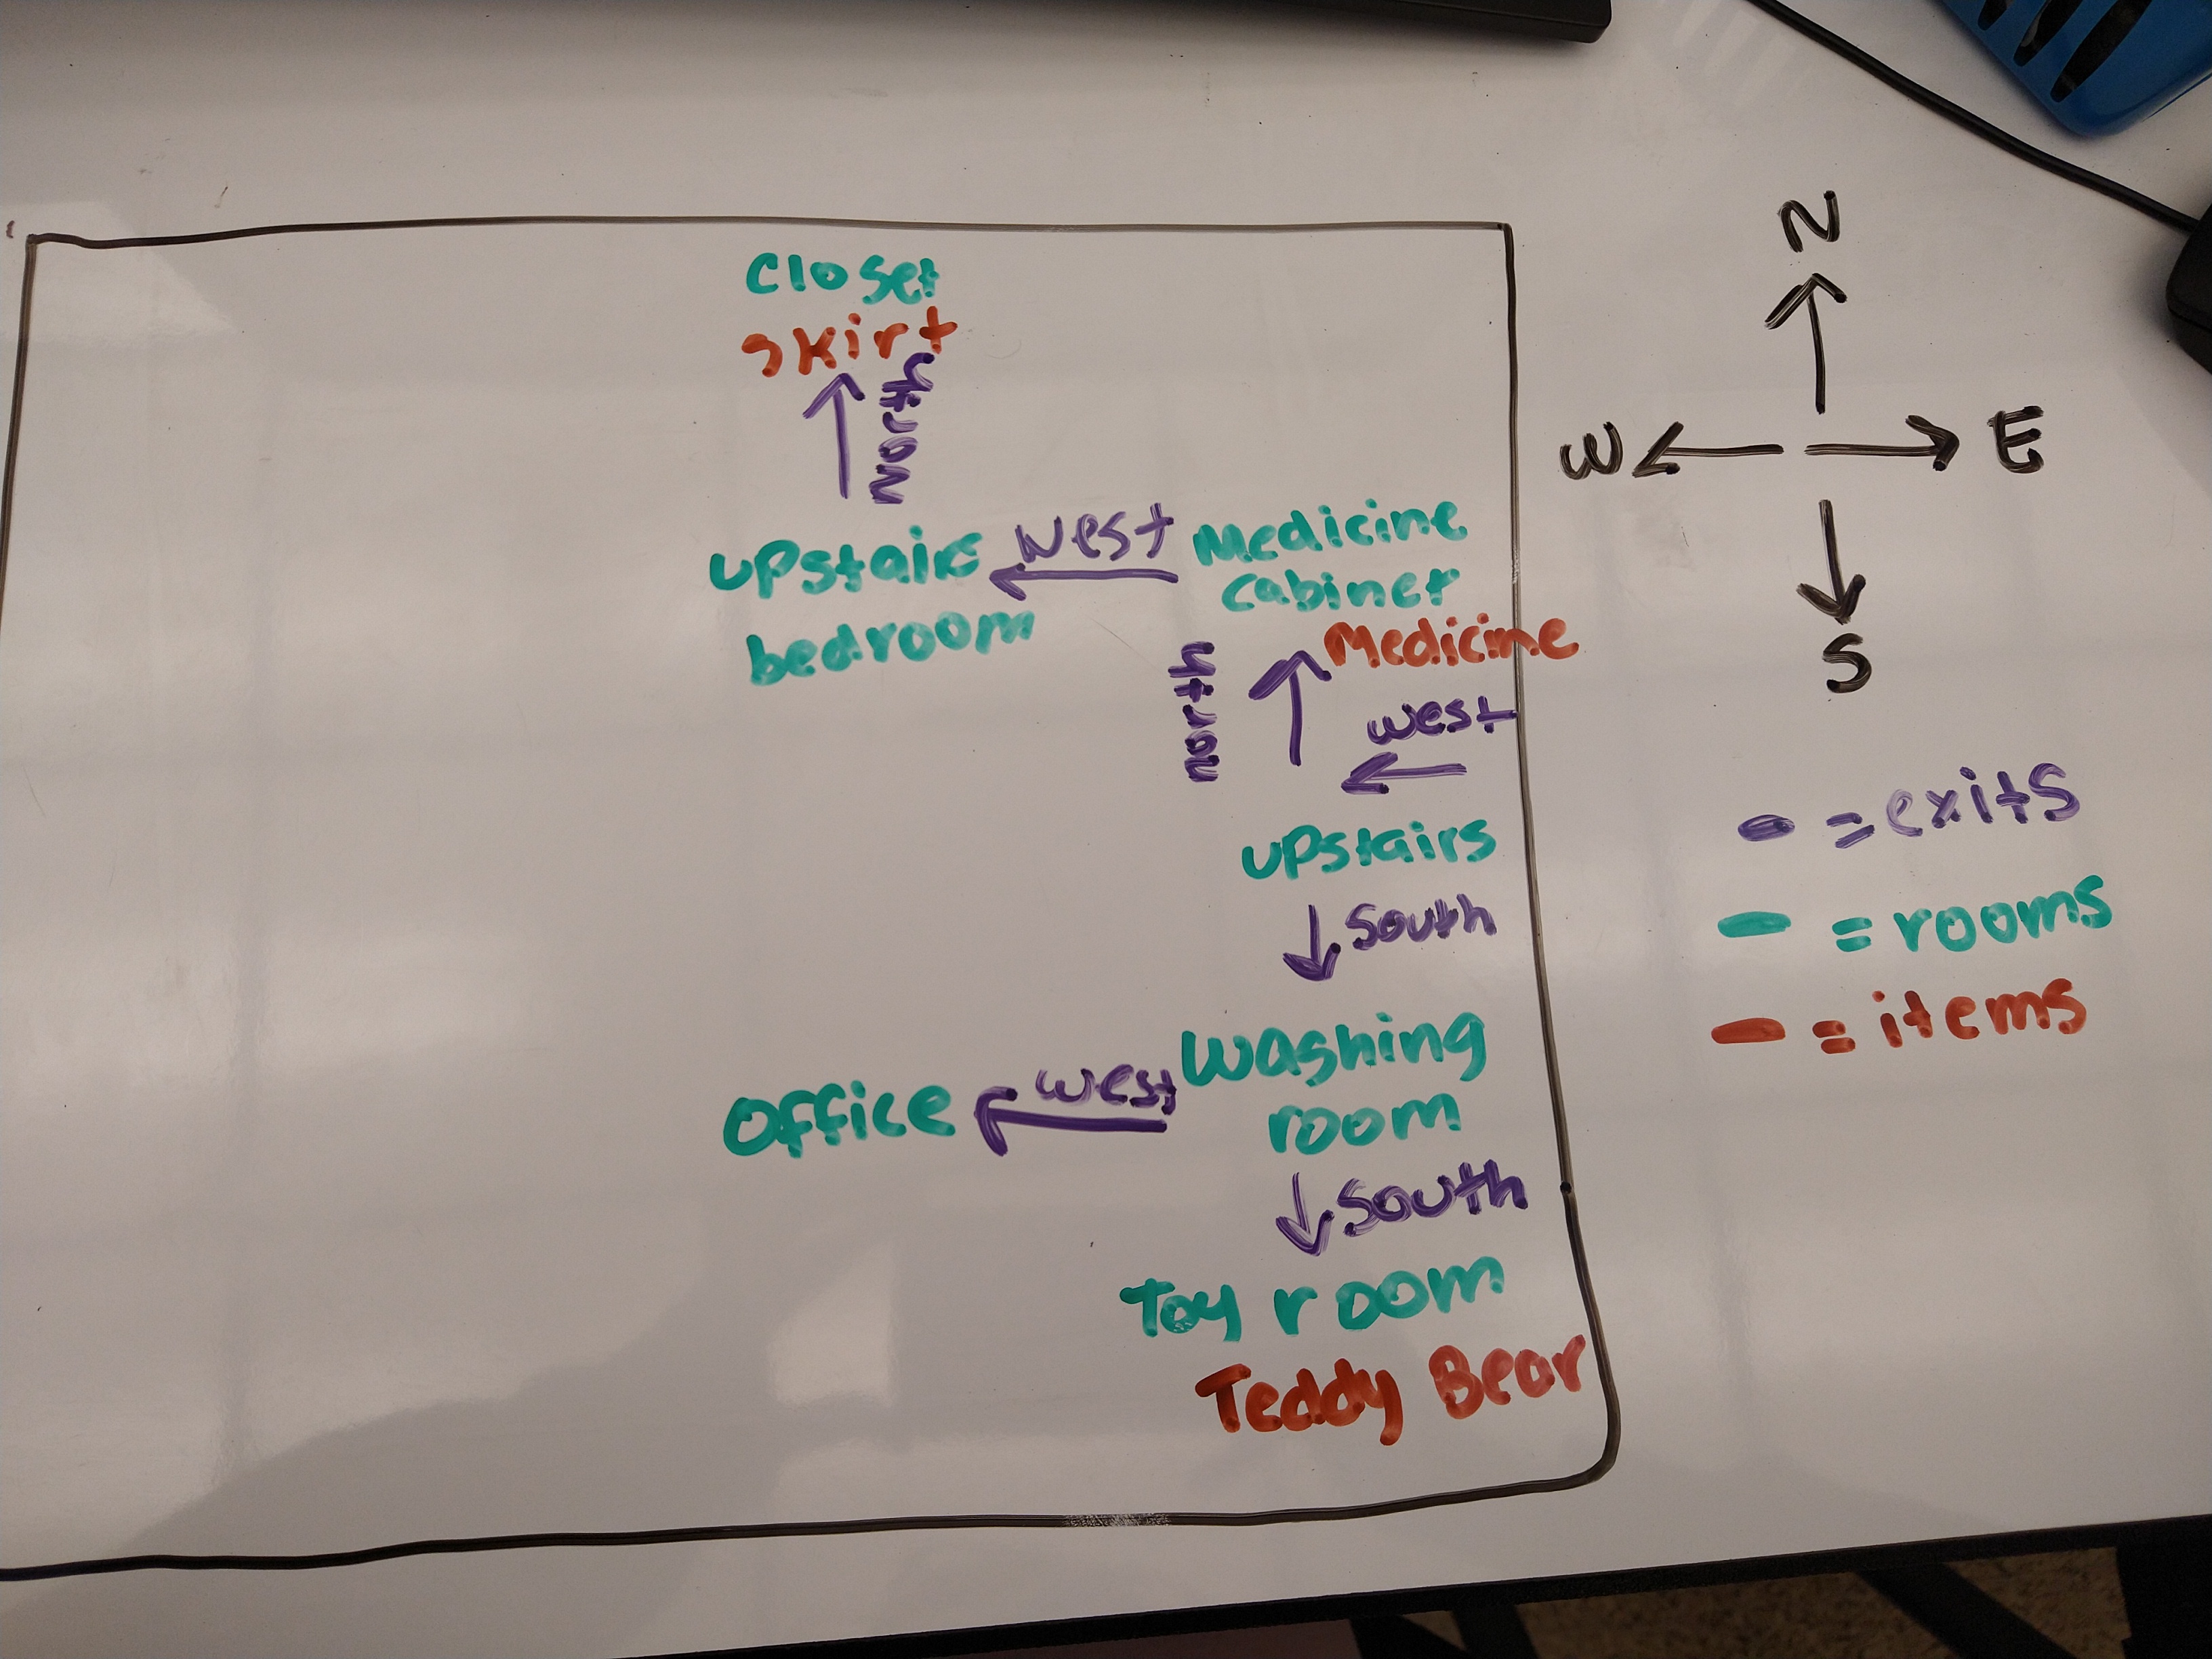 Closet
skirt
North
upstairs
bedroom
West
Medicine
cabinet
Medicine
north
west
upstairs
South
Washing
room
west
Office
South
Toy room
Teddy Bear
N
W
E
S
= exits
= rooms
= items